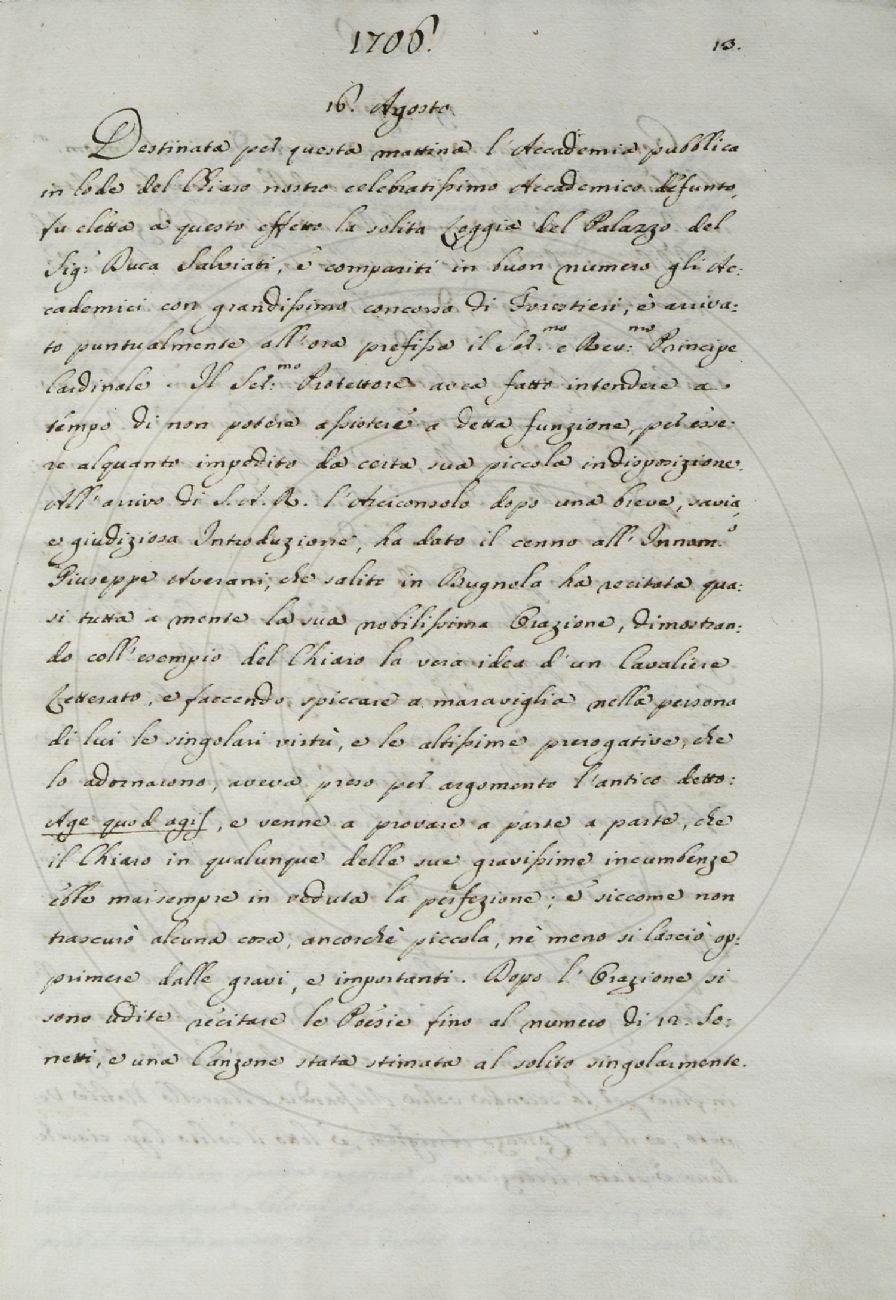 1706.
13.
16. Agosto
Destinata per questa mattina l'Accademia pubblica
in lode del Chiaro nostro celebratissimo Accademico defunto,
fu eletta a questo effetto la solita Loggia del Palazzo del
Sig.r Duca Salviati, e compariti in buon numero gli Ac:
cademici con grandissimo concorso di Forestieri, è arriva:
to puntualmente all'ora prefissa il Ser:mo e Rev:mo Principe
Cardinale. Il Ser:mo Protettore avea fatto intendere a
tempo di non potere assistere a detta funzione, per esse:
re alquanto impedito da certa sua piccola indisposizione.
All'arrivo di S. A. R. l'Arciconsolo dopo una breve, savia,
e giudiziosa Introduzione, ha dato il cenno all'Innom.o
Giuseppe Averani, che salito in Bugnola ha recitata qua:
si tutta a mente la sua nobilissima Orazione, dimostran:
do coll'esempio del Chiaro la vera idea d'un Cavaliere
Letterato, e faccendo spiccare a maraviglia nella persona
di lui le singolari virtù, e le altissime prerogative, che
lo adornarono, aveva preso per argomento l'antico detto:
Age quod agis, e venne a provare a parte a parte, che
il Chiaro in qualunque delle sue gravissime incumbenze
ebbe maisempre in veduta la perfezione; e siccome non
trascurò alcuna cosa, ancorchè piccola, nè meno si lasciò op:
primere dalle gravi, e importanti. Dopo l'Orazione si
sono udite recitare le Poesie fino al numero di 12. So:
netti, e una Canzone stata stimata al solito singolarmente.